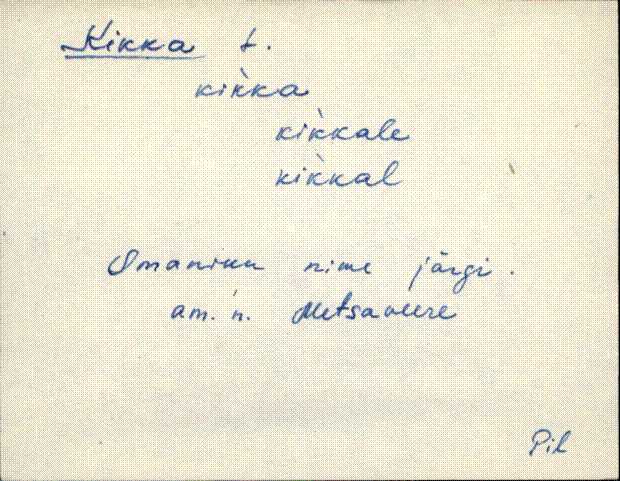 Kikka t.
kik̀ka
kik̀kale
kik̀kal
Omaniku nime järgi.
am. n. Metsaveere
Pil